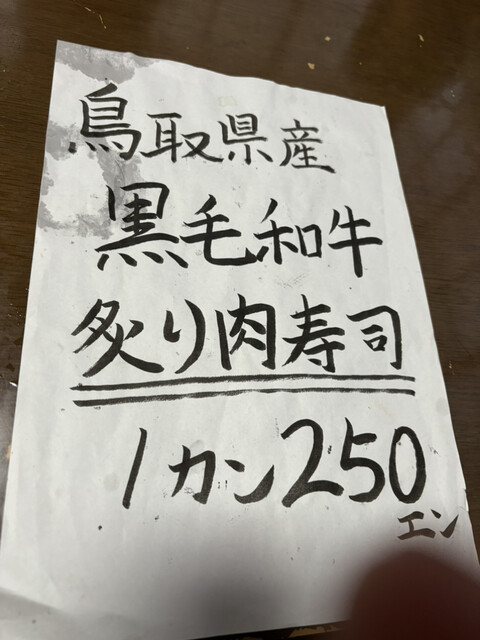 鳥取県産
黒毛和牛
炙り肉寿司
1カン250
エン